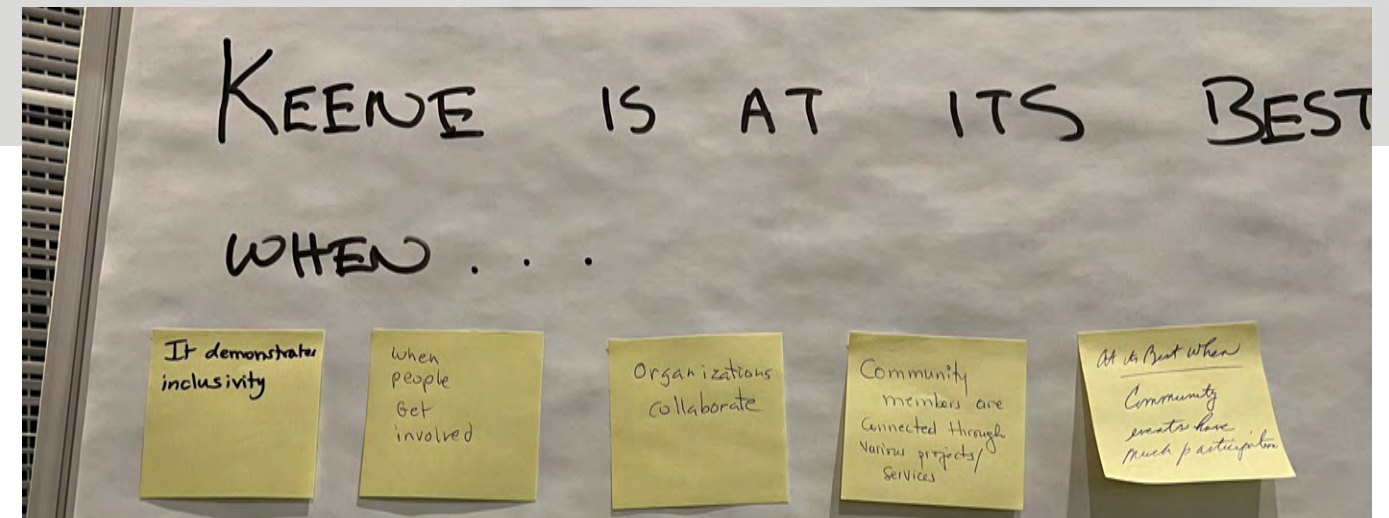 KEENE IS AT ITS BEST
WHEN . . .
It demonstrates
inclusivity
when
people
Get
involved
Organizations
Collaborate
Community
members are
Connected through
Various projects/
Services
At its Best when
Community
events have
much participation